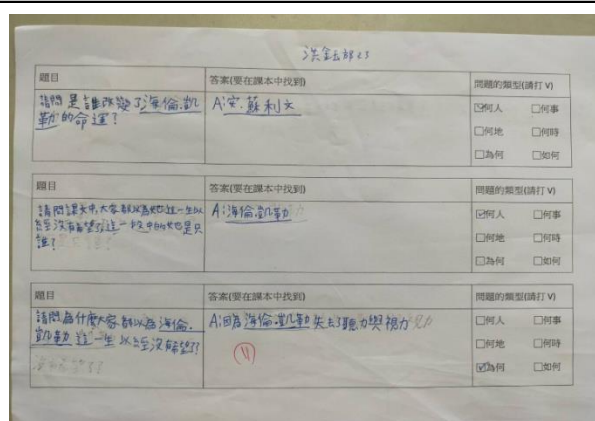 題目 答案(要在課本中找到) 問題的類型(請打 V)
請問是誰改變了海倫.凱
勒的命運?
A:安.蘇利文
☑何人 □何事
□何地 □何時
□為何 □如何
題目 答案(要在課本中找到) 問題的類型(請打 V)
請問課文中,大家都以為她這一生以
經沒有希望了這一段中的她是只
誰?
A:海倫.凱勒
☑何人 □何事
□何地 □何時
□為何 □如何
題目 答案(要在課本中找到) 問題的類型(請打 V)
請問為什麼大家都以為海倫.
凱勒這一生以經沒有希望了?
A:因為海倫.凱勒失去了聽力與視力
□何人 □何事
□何地 □何時
☑為何 □如何